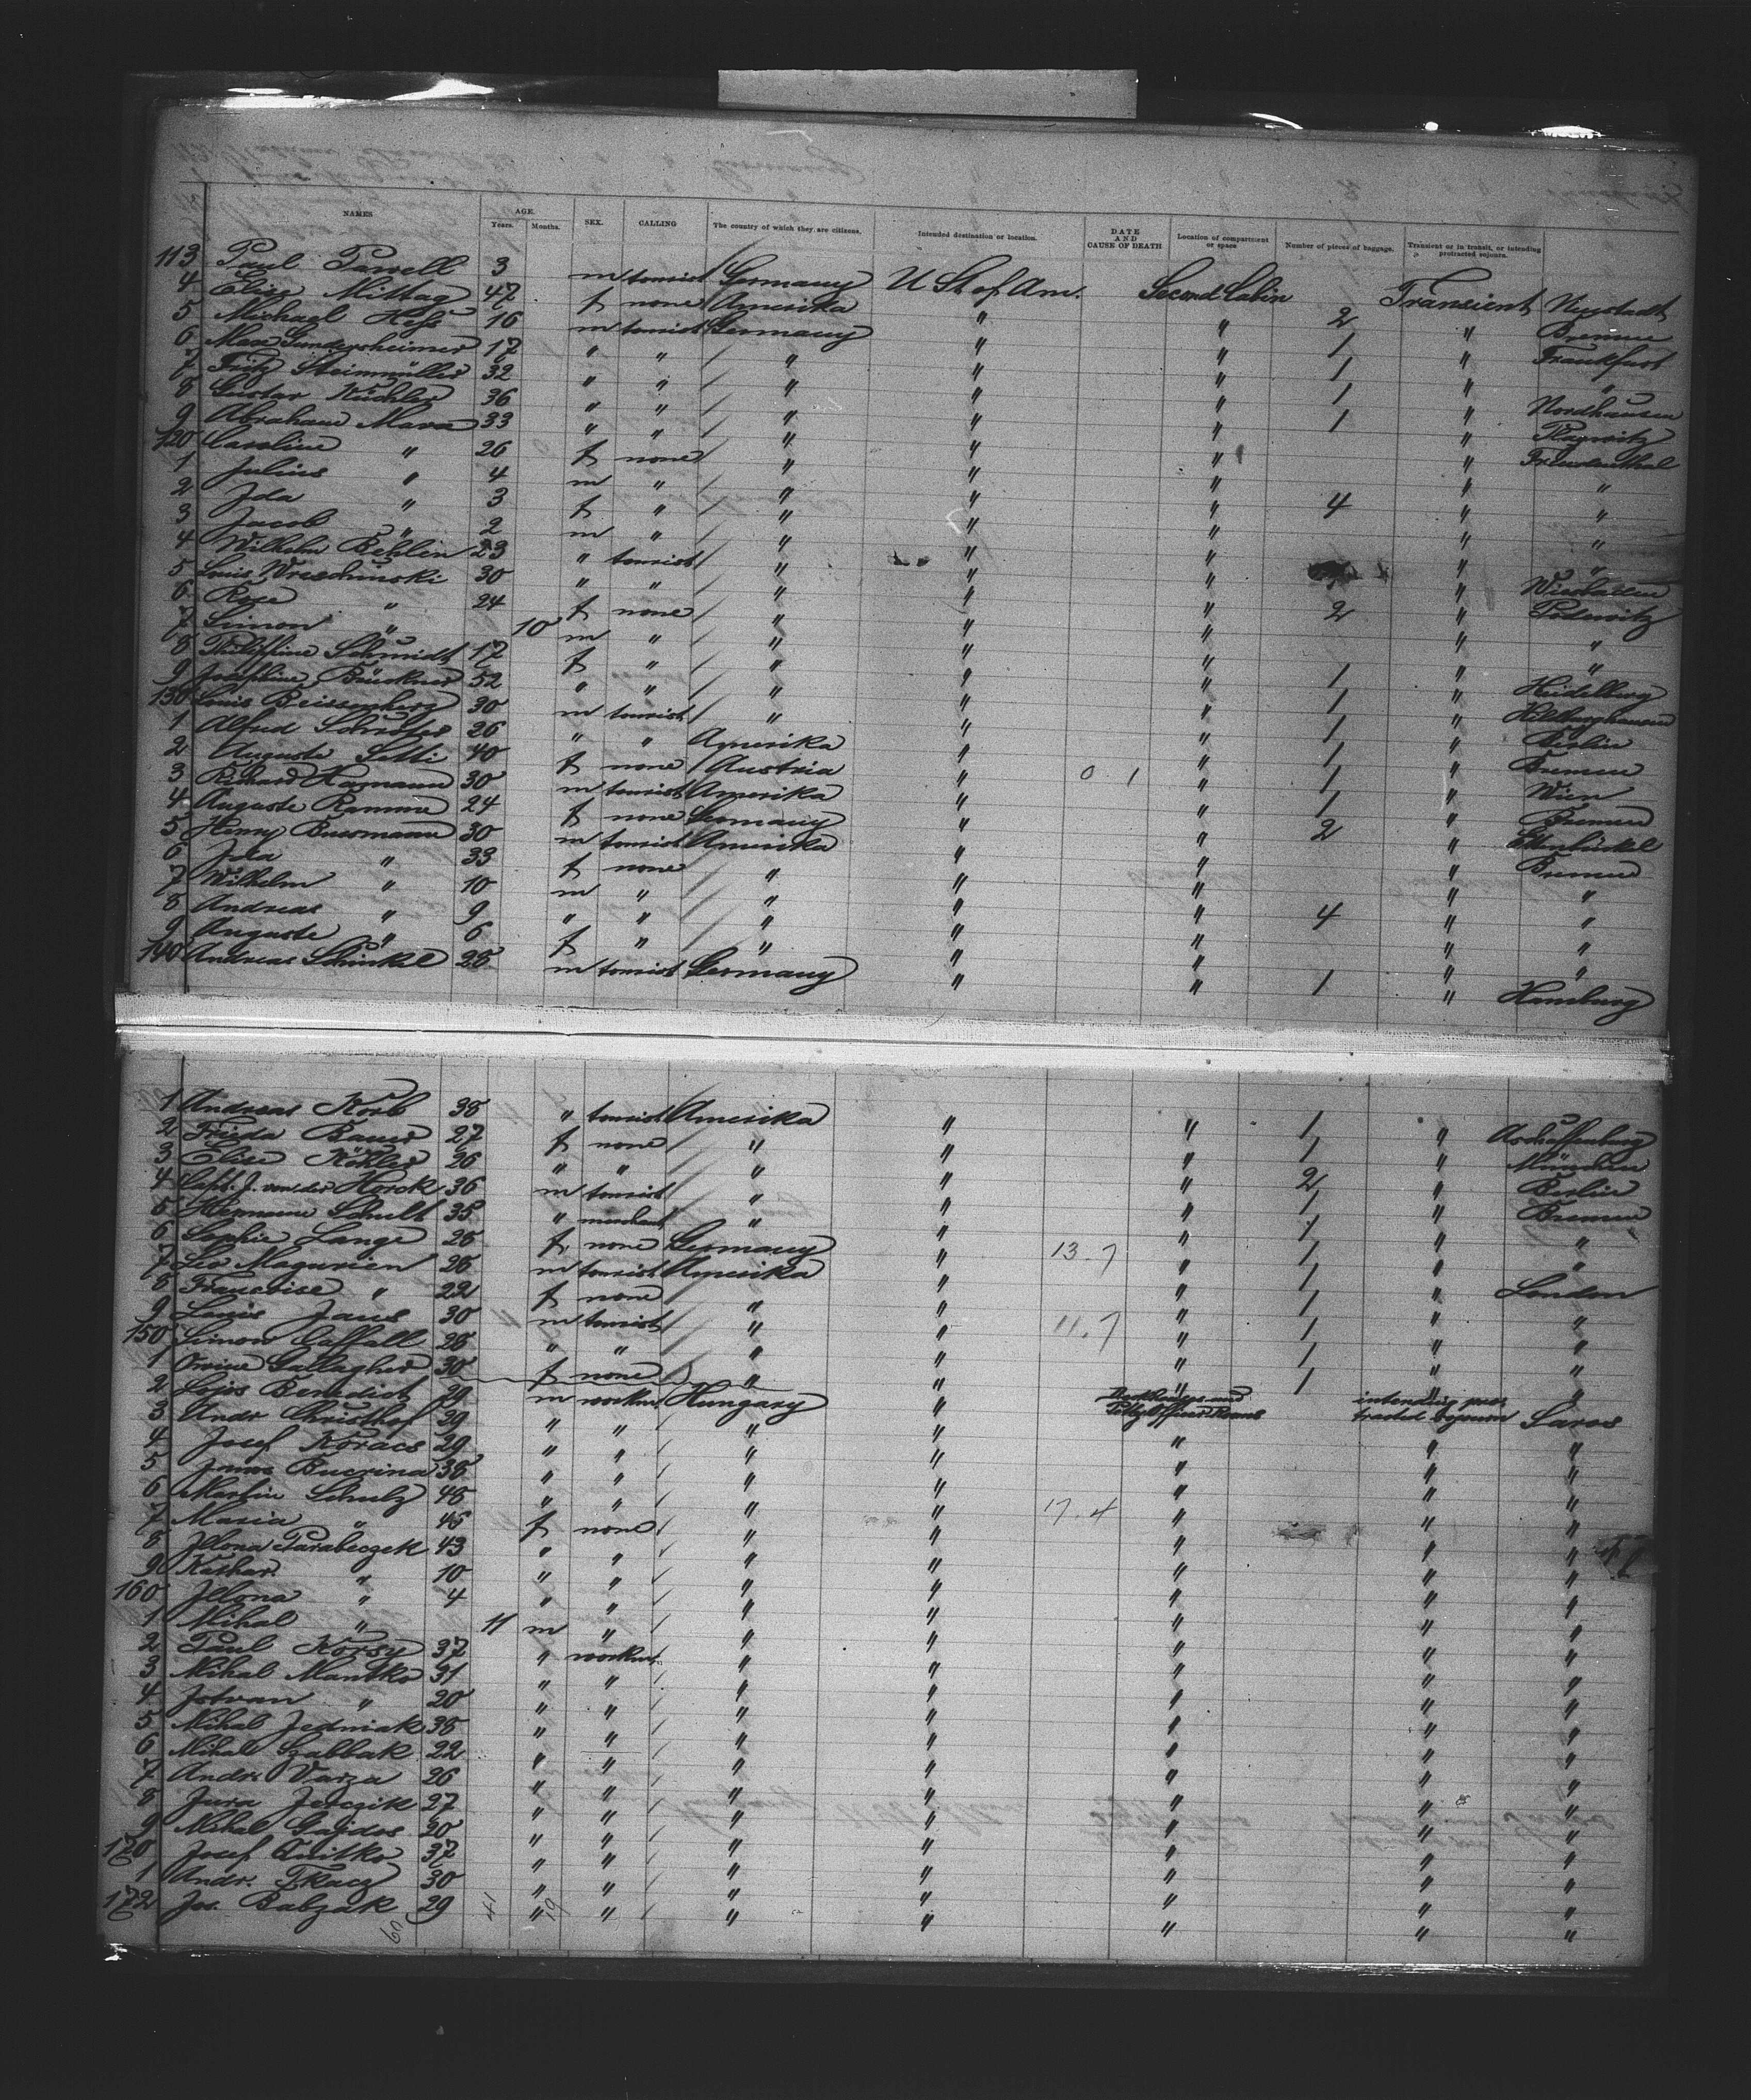 NAMES AGE. Years. Months. SEX. CALLING The country of which they are citizens. Intended destination or location. DATE AND CAUSE OF DEATH Location of compartment or space Number of pieces of baggage. Transient or in transit, or intending protracted sojourn.
113 Paul 3 m tourist Germany U St. of Am. Second Cabin Transient Neustadt
4 Elise Mittag 47 f none Amerika " " 2 " Bremen
5 Michael Hess 16 m tourist Germany " " 1 " Frankfurt
6 Max Gundersheimer 17 " " " " " 1 " "
7 Fritz Steinmüller 32 " " " " " 1 " Nordhausen
8 Gustav Küchler 36 " " " " " 1 "
9 Abraham 33 " " " " " " Freudenthal
120 Caroline " 26 f none " " " " "
1 Julius " 4 m " " " " 4 " "
2 Ida " 3 f " " " " " "
3 Jacob " 2 m " " " " " "
4 Wilhelm 23 " tourist " " " " Wiesbaden
5 Louis 30 " " " " " 2 "
6 Rosa " 24 f none " " " " "
7 Simon " 10 m " " " " " "
8 Philippine Schmidt 17 f " " " " 1 " Heidelberg
9 Josephine Brückner 52 " " " " " 1 " Hildburghausen
130 Louis 30 m tourist " " " 1 " Berlin
1 Alfred Schuster 26 " " Amerika " " 1 " Bremen
2 Auguste 40 f none Austria " 0 1 " 1 " Wien
3 Richard Hagmann 30 m tourist Amerika " " 1 " Bremen
4 Auguste Ramme 24 f none Germany " " 2 "
5 Henry Bussmann 30 m tourist Amerika " " " Bremen
6 Ida " 33 f none " " " " "
7 Wilhelm " 10 m " " " " 4 " "
8 Andreas " 9 " " " " " " "
9 Auguste " 6 f " " " " " "
140 Andreas Schinkel 28 m tourist Germany " " 1 " Hamburg
1 Andreas Korb 38 " tourist Amerika " " 1 " Aschaffenburg
2 Frieda Bauer 27 f none " " " 1 " München
3 Elise Köhler 26 " " " " " 2 " Berlin
4 Capt. J. von der Horck 36 m tourist " " " 1 " Bremen
5 Hermann Schult 35 " merchant " " " 1 " "
6 Sophie Lange 26 f none Germany " 13.7 " 1 " "
7 Leo 26 m tourist Amerika " " 1 " London
8 Francoise " 22 f none " " " 1 " "
9 Louis 30 m tourist " " 11.7 " 1 " "
150 Simon 28 " " " " " 1 " "
1 Gallagher 30 f none " " " 1 " "
2 Lajos Benedict 29 m workm. Hungary " intending pro-tracted sojourn Saros
3 Andr. Christhof 39 " " " " " " "
4 Josef Kovacs 29 " " " " " " "
5 Bucrina 38 " " " " " " "
6 Martin Schulz 48 " " " " 17.4 " " "
7 Maria " 45 f none " " " " "
8 Illona Parabeczek 43 " " " " " " "
9 Kathar. " 10 " " " " " " "
160 Illona " 4 " " " " " " "
1 Mihal " 11 m " " " " " "
2 Paul 37 " workm. " " " " "
3 Mihal Mantko 31 " " " " " " "
4 Istvan " 20 " " " " " " "
5 Mihal Jedniak 38 " " " " " " "
6 Mihal Szabbak 22 " " " " " " "
7 Andr. Varza 26 " " " " " " "
8 Jura 27 " " " " " " "
9 Mihal Gajdos 20 " " " " " " "
170 Josef 37 " " " " " " "
1 Andr. Tkacz 30 " " " " " " "
172 Jos. Babzak 29 " " " " " " "
60 41 19